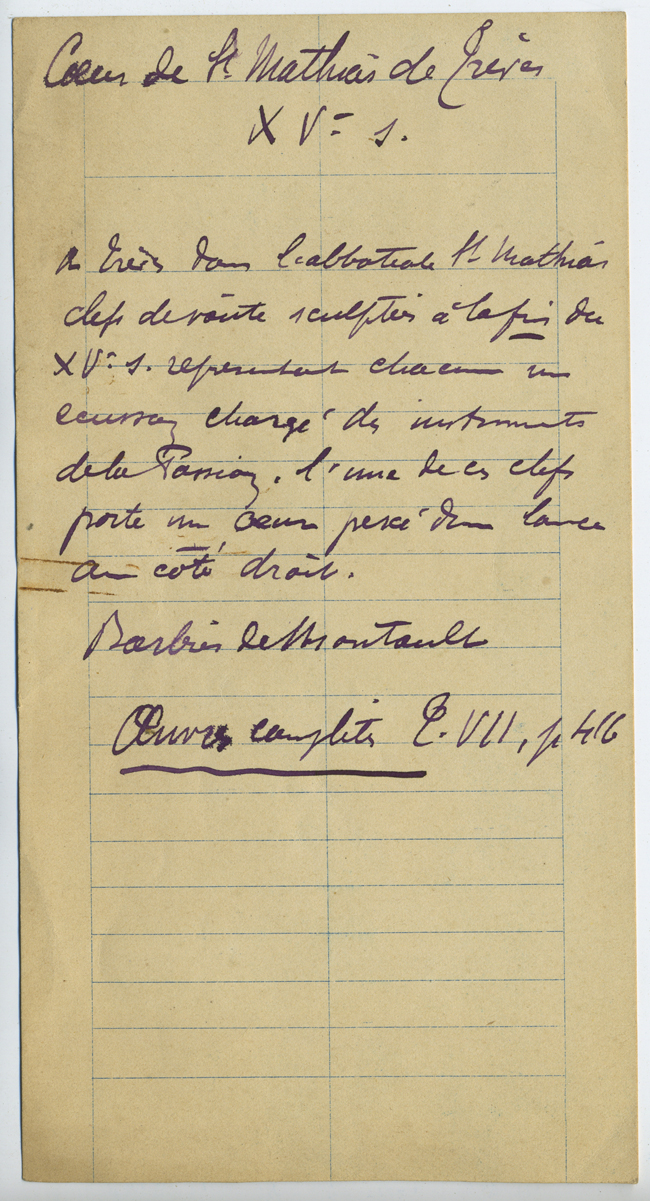 Cœur de St Mathias de Trèves
XVe s.
A Trèves dans l'abbatiale St Mathias
clefs de voûte sculptées à la fin du
XVe s. représentant chacune un
écusson chargé des instruments
de la Passion. l'une de ces clefs
porte un cœur percé d'une lance
au côté droit.
Barbier de Montault
Œuvres complètes T. VII, p 416